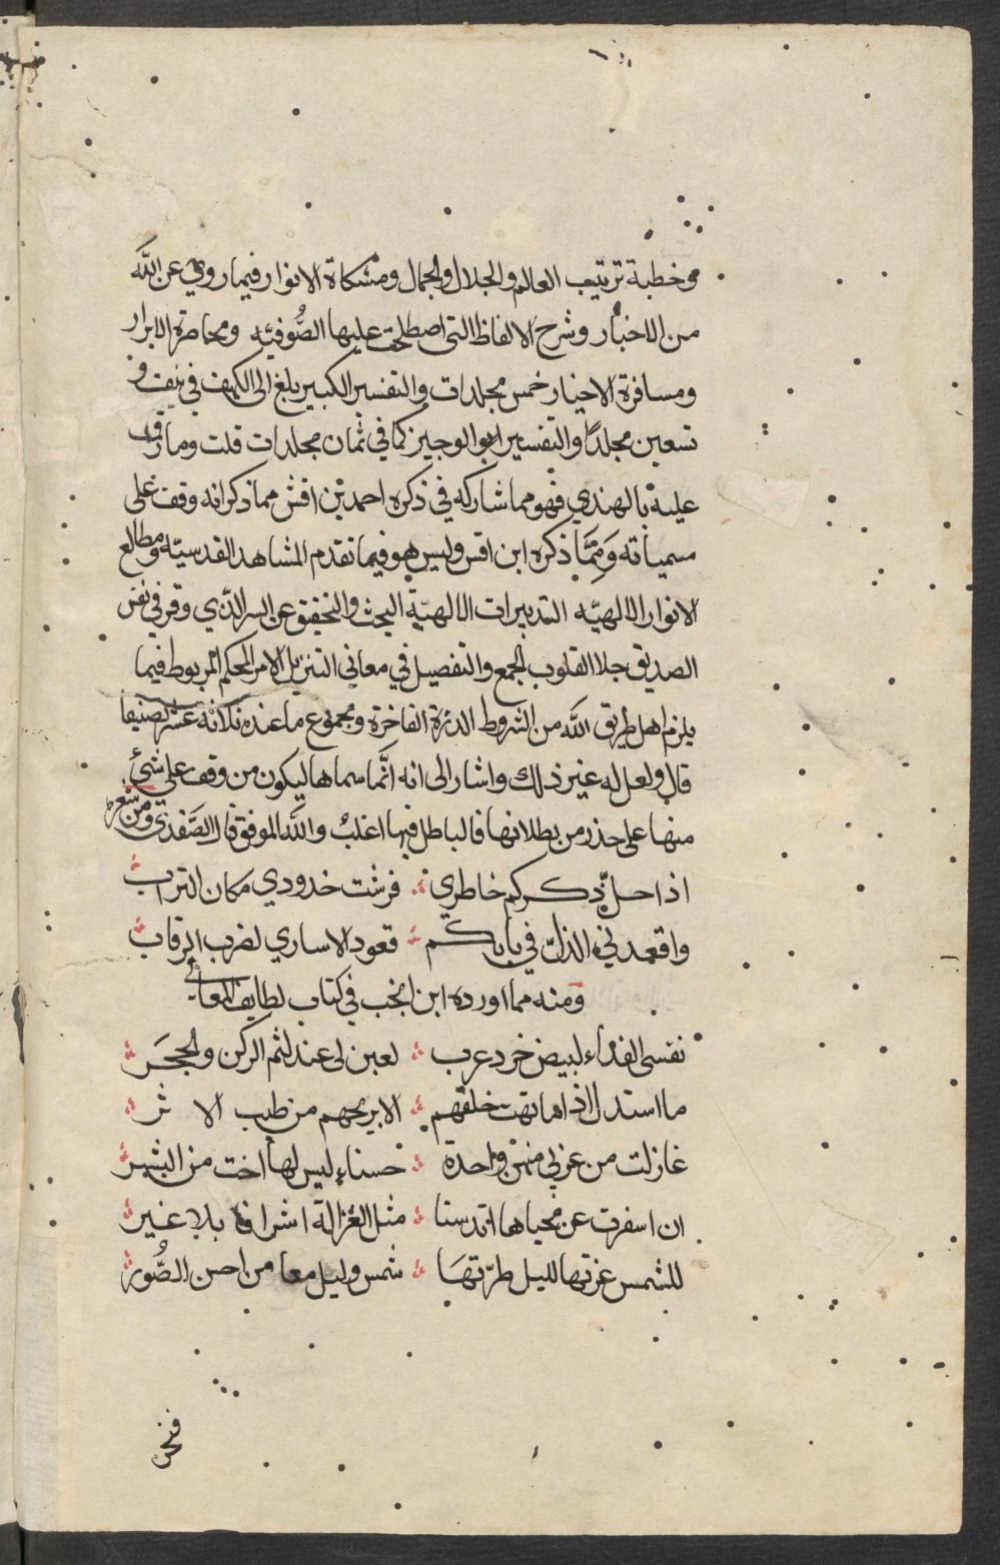 وخطبة ترتيب العالم والجلال والجمال ومشكاة الانوار فيما روي عن الله
من الاخبار وشرح الالفاظ التي اصطلحت عليها الصُّوفيّه ومحاضرة الابرار
ومسافرة الاخيار خمس مجلدات والتفسير الكبير بلغ الى الكهف في نيف و
تسعين مجلدًا والتفسير ابو الوجيز كما في ثمان مجلدات قلت وما رقمت
عليه بالهندي فهو مما شاركه في ذكره احمد بن اقش مما ذكر انه وقف على
مسمياته وَمِمَّا ذكره ابن اقس وليس هو فيما تقدم المشاهد القدسيّه ومطالع
الانوار الالهيّه التدبيرات الالهيّة البحث والتحقيق عن السر الذي وقر في نفس
الصديق جلا القلوب الجمع والتفصيل في معاني التنزيل الامر المحكم المربوط فيما
يلزم اهل طريق الله من الشروط الدرّة الفاخرة ومجموع ما عنده ثلاثه عشر تصنيفا
قال ولعل له غير ذلك واشار الى انه انّما سماها ليكون من وقف على شئ
منها على حذر من بطلانها فالباطل فيها اغلبُ والله الموفق قال الصَّفدي ومن شعره
اذا حلّ ذكركم خاطري فرشت خدودي مكان التراب
واقعدني الذل في بابكم قعود الاساري لضرب الرقاب
ومنه مما اورده ابن في كتاب لطايف المعاني
نفسى الفداء لبيض خرد عرب لعبن لى عند لثم الركن والحجر
ما استدل اذا ما تهت خلفهم الا بريحهم من طيب الاثر
غازلت من غزلي منهن واحدة حسناء ليس لها اخت من البشر
ان اسفرت عن محياها اتدسنا مثل الغزالة اشراقا بلا غير
للشمس غرتها لليل طرّتهَا شمس وليل معا من احسن الصُّور
فنحن